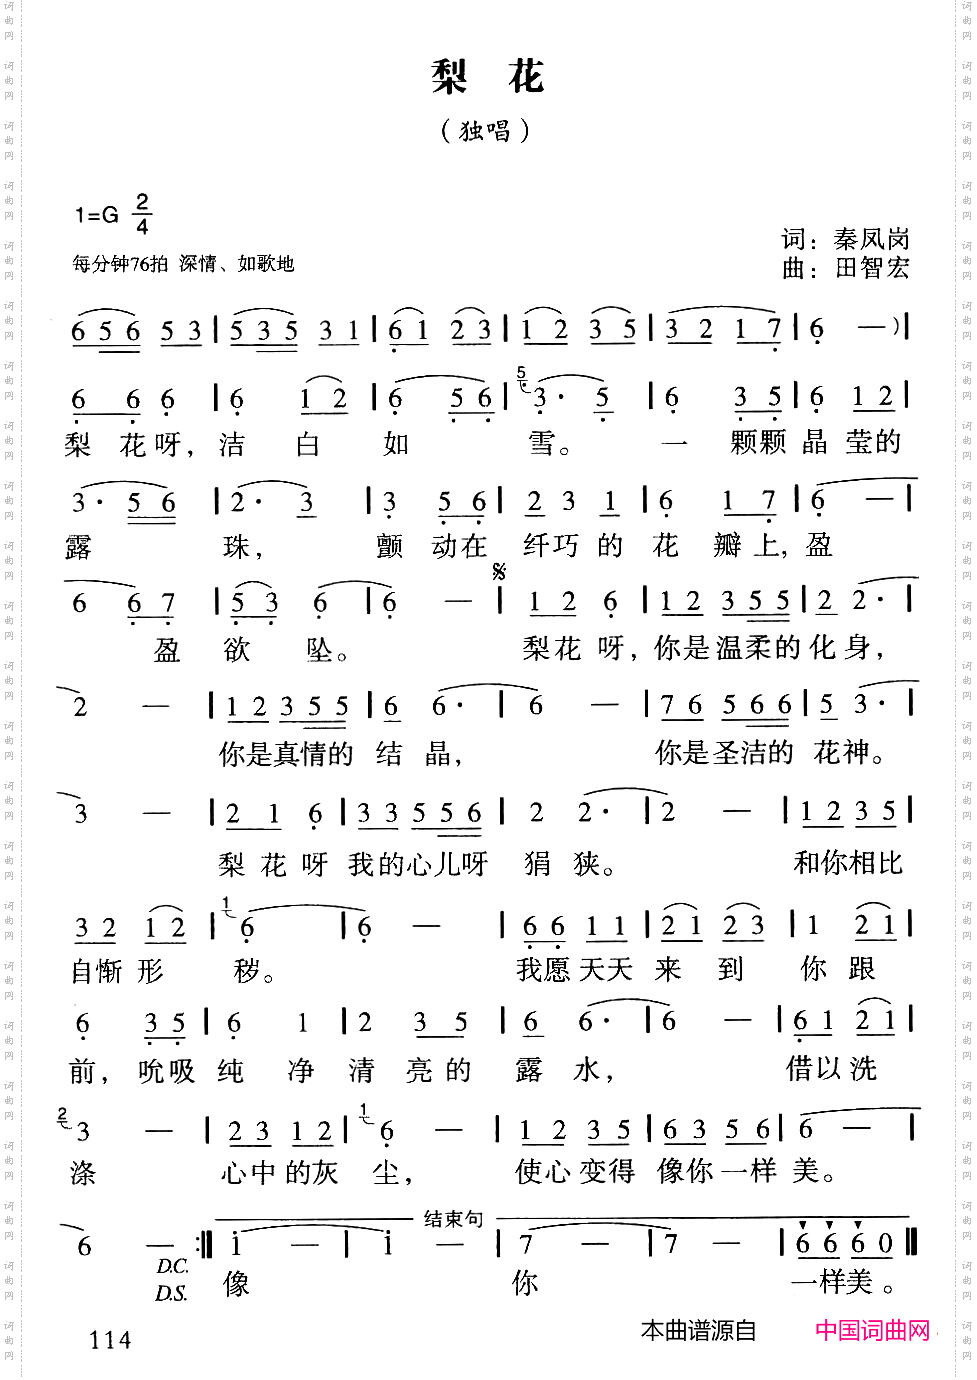 梨 花
（独唱）
1=G 2/4
词：秦凤岗
每分钟76拍 深情、如歌地
曲：田智宏
6 5 6 5 3 | 5 3 5 3 1 | 6 1 2 3 | 1 2 3 5 | 3 2 1 7 | 6 — ) |
6 6 6 | 6 1 2 | 6 5 6 | 5 3· 5 | 6 3 5 | 6 1 2 |
梨 花 呀， 洁 白 如 雪。 一 颗颗 晶 莹的
3· 5 6 | 2· 3 | 3 5 6 | 2 3 1 | 6 1 7 | 6 — |
露 珠， 颤 动在 纤巧 的 花 瓣上， 盈
6 6 7 | 5 3 6 | 6 — | 𝄋 1 2 6 | 1 2 3 5 5 | 2 2· |
盈 欲 坠。 梨花 呀， 你是温柔的 化 身，
2 — | 1 2 3 5 5 | 6 6· | 6 — | 7 6 5 6 6 | 5 3· |
你是真情的 结 晶， 你是圣洁的 花神。
3 — | 2 1 6 | 3 3 5 5 6 | 2 2· | 2 — | 1 2 3 5 |
梨 花 呀 我的心儿呀 狷 狭。 和你相比
3 2 1 2 | 1 6 | 6 — | 6 6 1 1 | 2 1 2 3 | 1 2 1 |
自惭 形 秽。 我愿天天 来 到 你 跟
6 3 5 | 6 1 | 2 3 5 | 6 6· | 6 — | 6 1 2 1 |
前， 吮吸 纯 净 清 亮 的 露 水， 借以 洗
2 3 — | 2 3 1 2 | 1 6 — | 1 2 3 5 | 6 3 5 6 | 6 — |
涤 心中 的灰 尘， 使心 变得 像你 一样 美。
结束句
6 — :‖ i — | i — | 7 — | 7 — | 6 6 6 0 ‖
D.C.
D.S.
像 你 一样美。
114
本曲谱源自 中国词曲网
词曲网